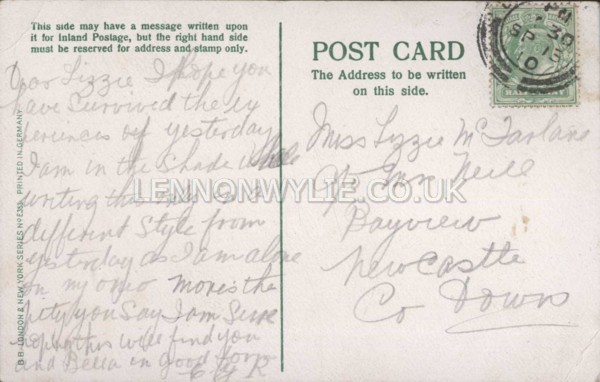 This side may have a message written upon
it for Inland Postage, but the right hand side
must be reserved for address and stamp only.
Dear Lizzie I hope you
have Survived the ex
periences of yesterday
I am in the Shade while
writing this only in a
different Style from
yesterday as I am alone
on my own mores the
pity you Say I am Sure
hoping this will find you
and Bella in Good form
B.B. LONDON & NEW YORK SERIES No E PRINTED IN GERMANY
POST CARD
The Address to be written
on this side.
PM
30
SP 15
10
HALFPENNY
Miss Lizzie McFarlane
c/o Mrs Neill
Bayview
Newcastle
Co Down
LENNONWYLIE.CO.UK